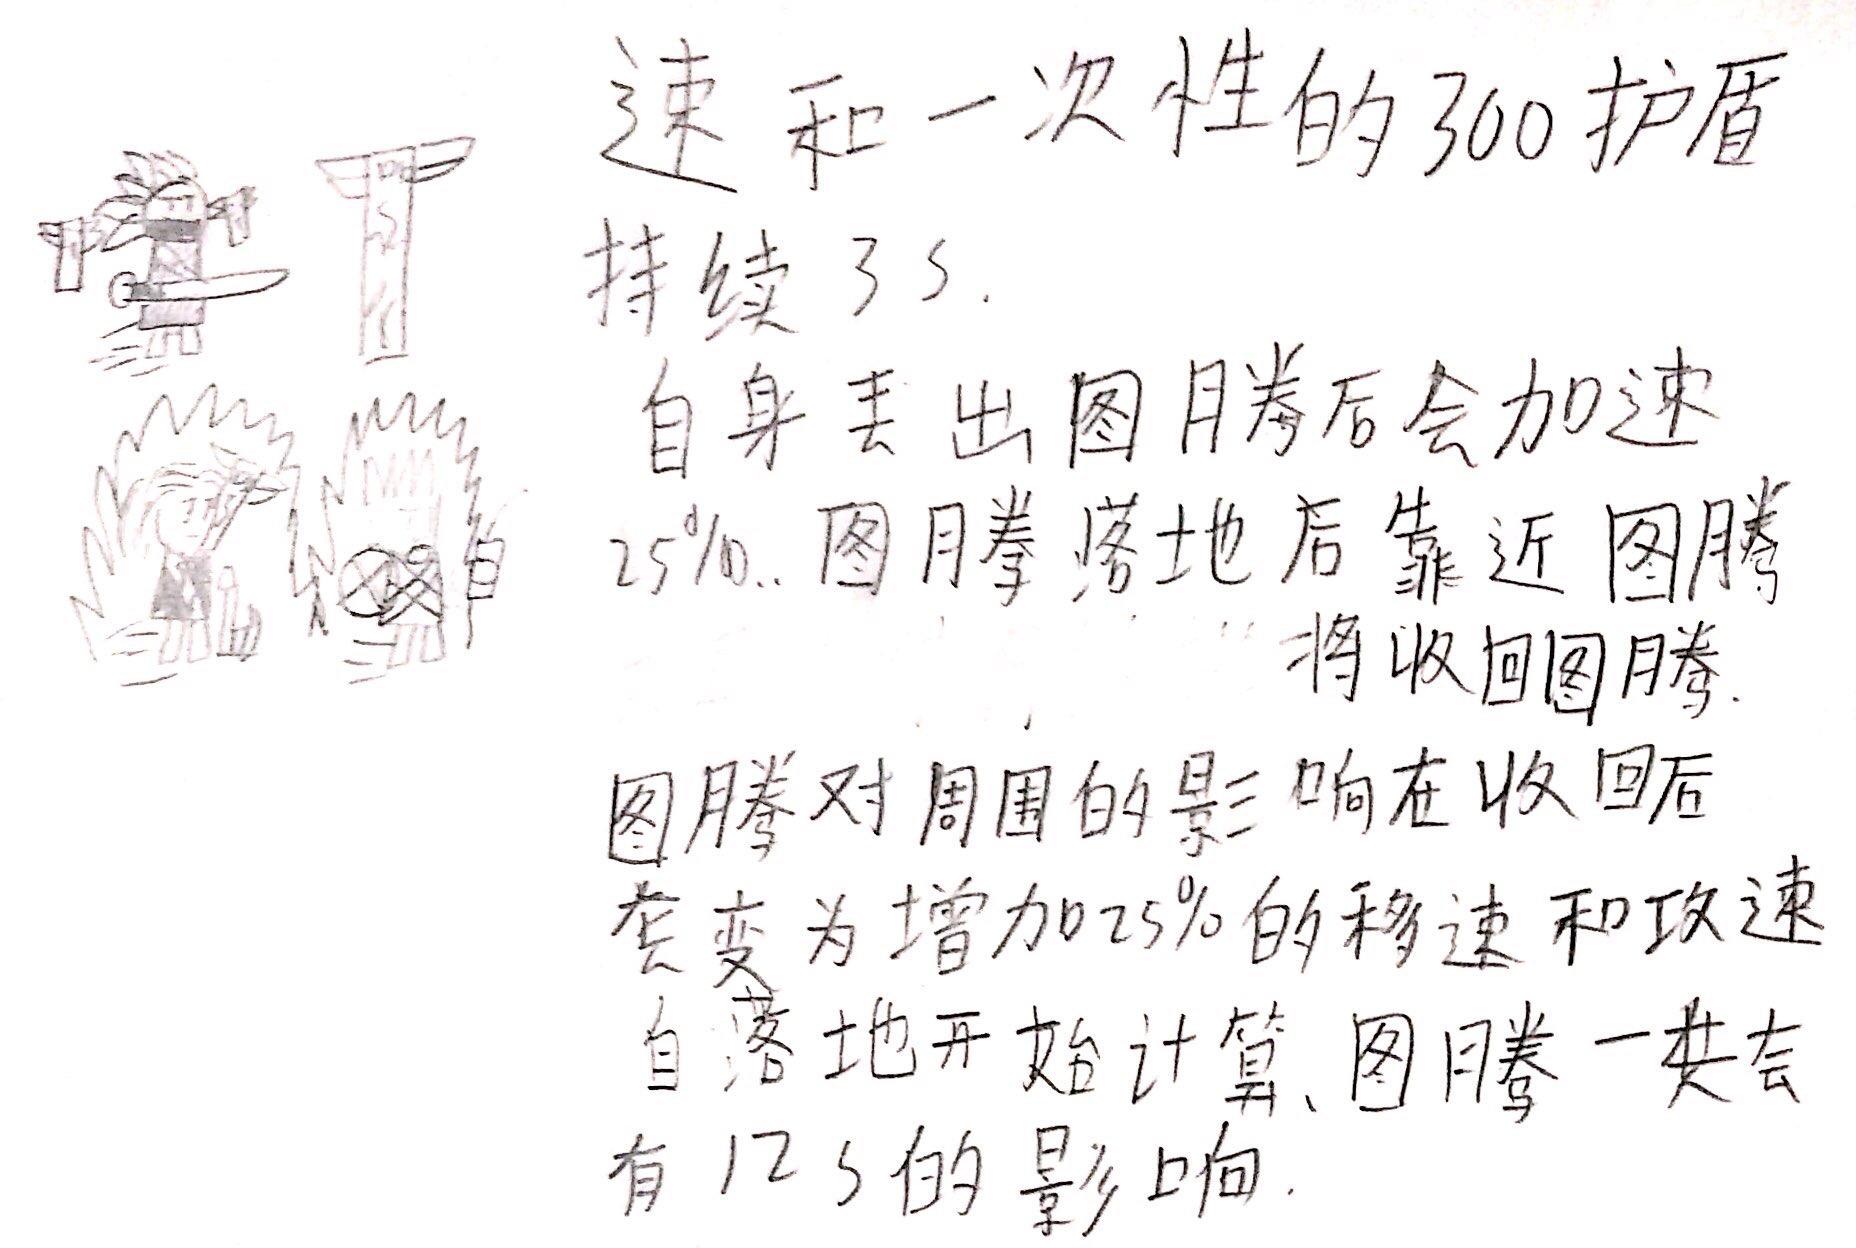 速和一次性的300护盾
持续3s.
自身丢出图腾后会加速
25%..图腾落地后靠近图腾
将收回图腾.
图腾对周围的影响在收回后
变为增加25%的移速和攻速
自落地开始计算、图腾一共会
有12s的影响.